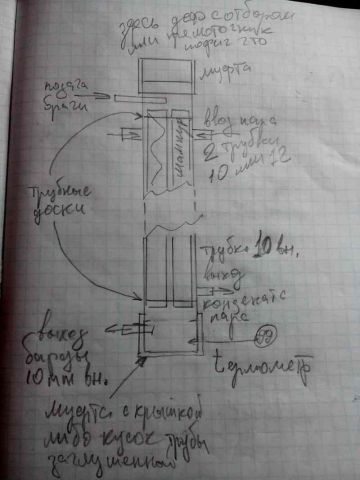 здесь деф с отбором
или прямоточник
подач что
муфта
подача
браги
ввод пара
2 трубки
10 или 12
шампур
трубные
доски
трубка 10 вн.
выход
конденсата
пара
выход
барды
10 mm вн.
99
термометр
муфта с крышкой
либо кусок трубы
заглушенной